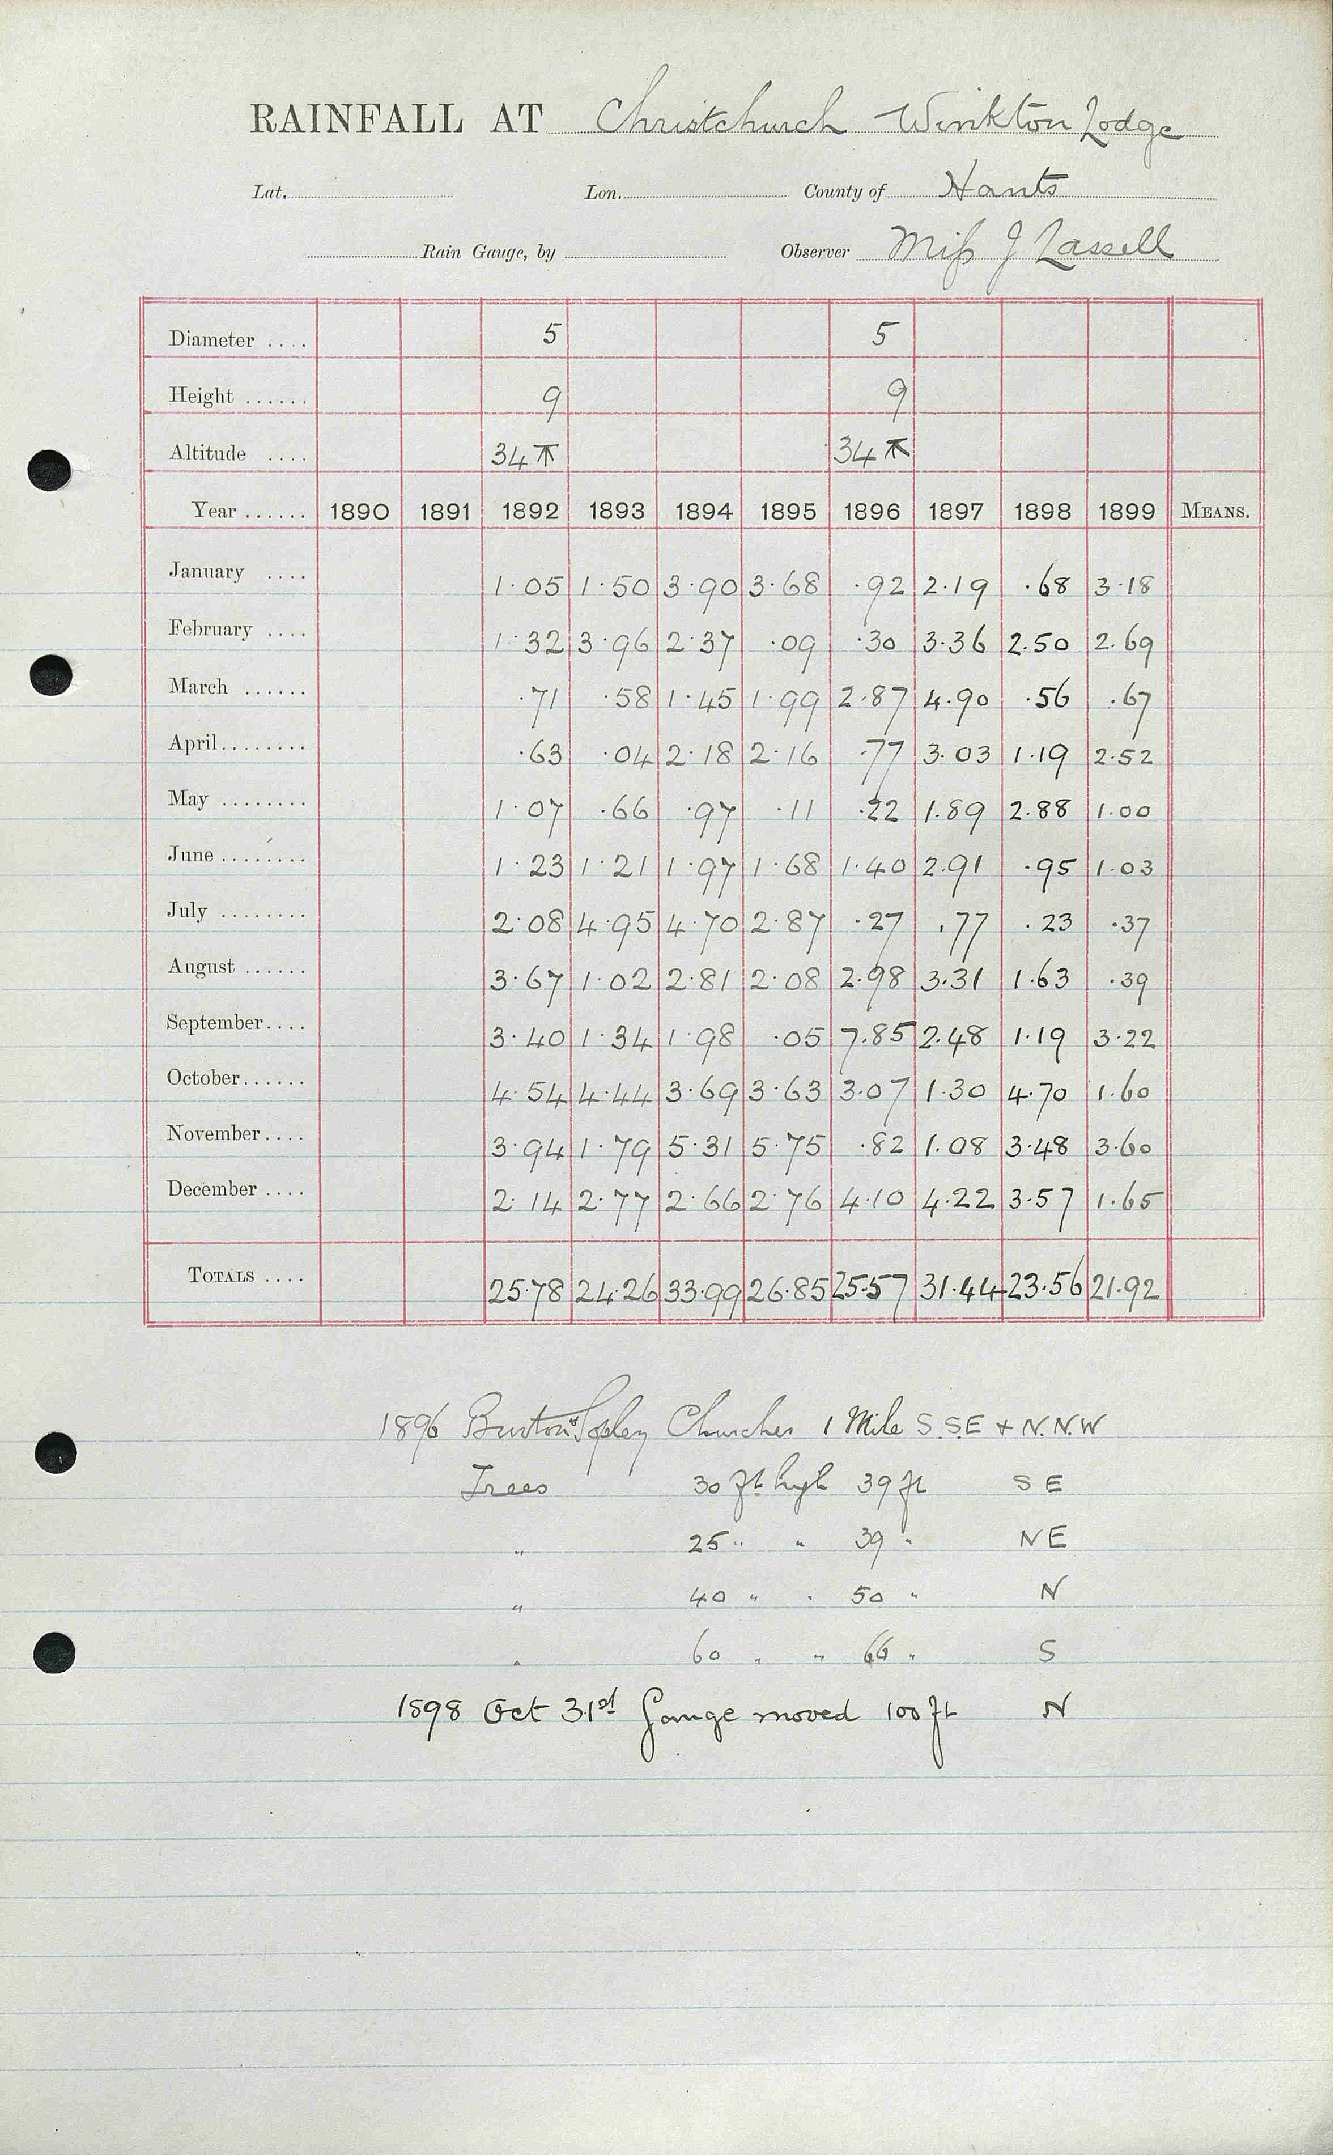 RAINFALL AT Christchurch Winkton Lodge
Lat. Lon. County of Hants
Rain Gauge, by Observer Miss J Lassell
Diameter .... 5 5
Height ...... 9 9
Altitude .... 34 34
Year ...... 1890 1891 1892 1893 1894 1895 1896 1897 1898 1899 MEANS.
January .... 1.05 1.50 3.90 3.68 .92 2.19 .68 3.18
February .... 1.32 3.96 2.37 .09 .30 3.36 2.50 2.69
March ...... .71 .58 1.45 1.99 2.87 4.90 .56 .67
April........ .63 .04 2.18 2.16 .77 3.03 1.19 2.52
May ........ 1.07 .66 .97 .11 .22 1.89 2.88 1.00
June ........ 1.23 1.21 1.97 1.68 1.40 2.91 .95 1.03
July ........ 2.08 4.95 4.70 2.87 .27 .77 .23 .37
August ...... 3.67 1.02 2.81 2.08 2.98 3.31 1.63 .39
September.... 3.40 1.34 1.98 .05 7.85 2.48 1.19 3.22
October...... 4.54 4.44 3.69 3.63 3.07 1.30 4.70 1.60
November.... 3.94 1.79 5.31 5.75 .82 1.08 3.48 3.60
December .... 2.14 2.77 2.66 2.76 4.10 4.22 3.57 1.65
TOTALS .... 25.78 24.26 33.99 26.85 25.57 31.44 23.56 21.92
1896 Burton & Sopley Churches 1 Mile S.S.E + N.N.W
Trees 30 ft high 39 ft S E
" 25 " " 39 " N E
" 40 " " 50 " N
" 60 " " 66 " S
1898 Oct 31st Gauge moved 100 ft N